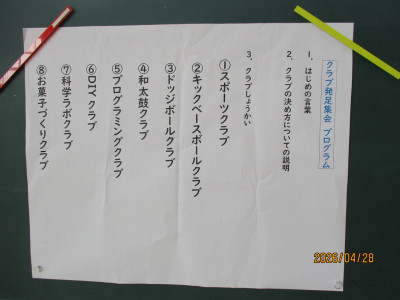 クラブ発足集会 プログラム
1．はじめの言葉
2．クラブの決め方についての説明
3．クラブしょうかい
①スポーツクラブ
②キックベースボールクラブ
③ドッジボールクラブ
④和太鼓クラブ
⑤プログラミングクラブ
⑥DIYクラブ
⑦科学ラボクラブ
⑧お菓子づくりクラブ
2025/04/28